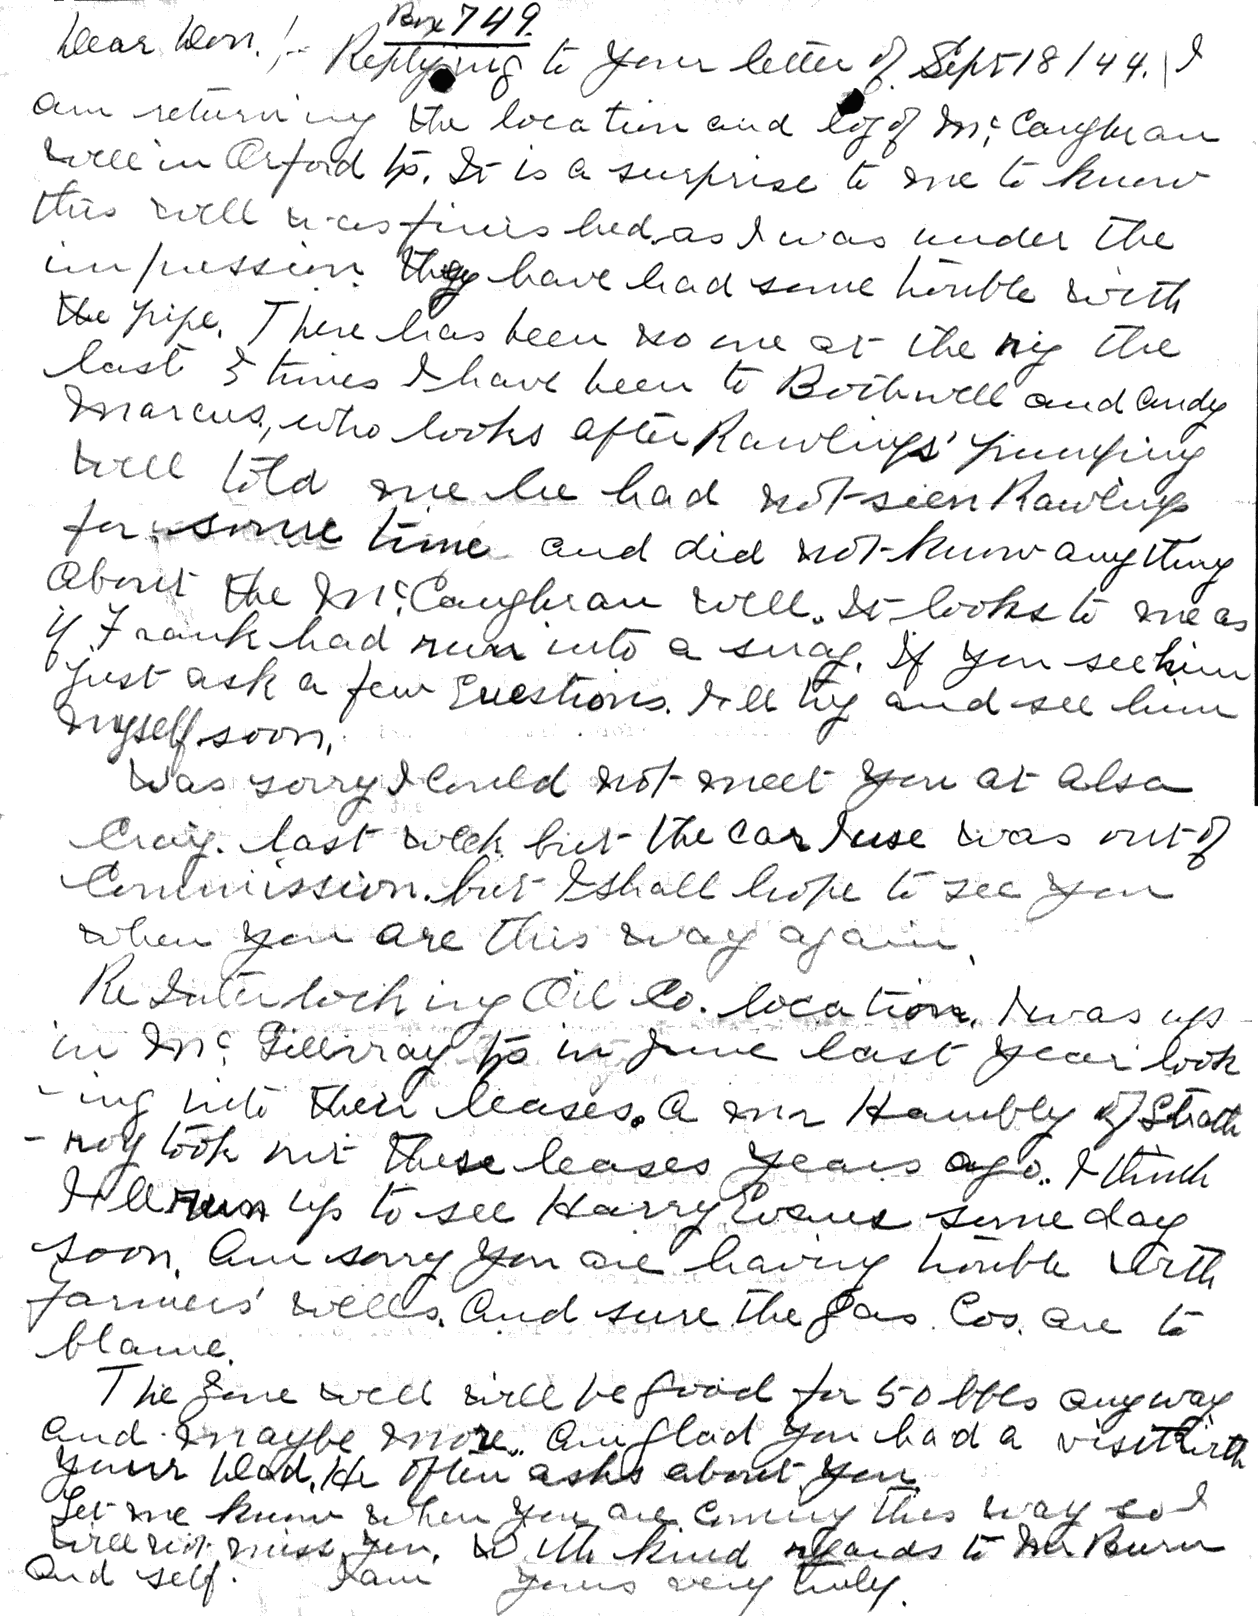 Box 749.
Dear Don. :- Replying to your letter of Sept 18/44. I
am returning the location and log of McCaughran
well in Orford tp. It is a surprise to me to know
this well was finished, as I was under the
impression they have had some trouble with
the pipe. There has been no one at the rig the
last 3 times I have been to Bothwell and Andy
Marcus, who looks after Rawlings' pumping
well told me he had not seen Rawlings
for some time and did not know anything
about the McCaughran well. It looks to me as
if Frank had run into a snag. If you see him
just ask a few questions. I'll try and see him
myself soon.
Was sorry I could not meet you at Alsa
Craig last week but the car I use was out of
Commission. but I shall hope to see you
when you are this way again.
Re Interlocking Oil Co. location. I was up
in McGillivray tp in June last year look
-ing into their leases. A Mr Hambly of Strath
-roy took out these leases years ago. I think
I'll run up to see Harry Evans some day
soon. Am sorry you are having trouble with
farmers' wells. And sure the gas Cos. are to
blame.
The well will be good for 50 bbls anyway
and maybe more. Am glad you had a visit with
your Dad. He often asks about you.
Let me know when you are coming this way so I
will not miss you. With kind regards to
and self. I am yours very truly.